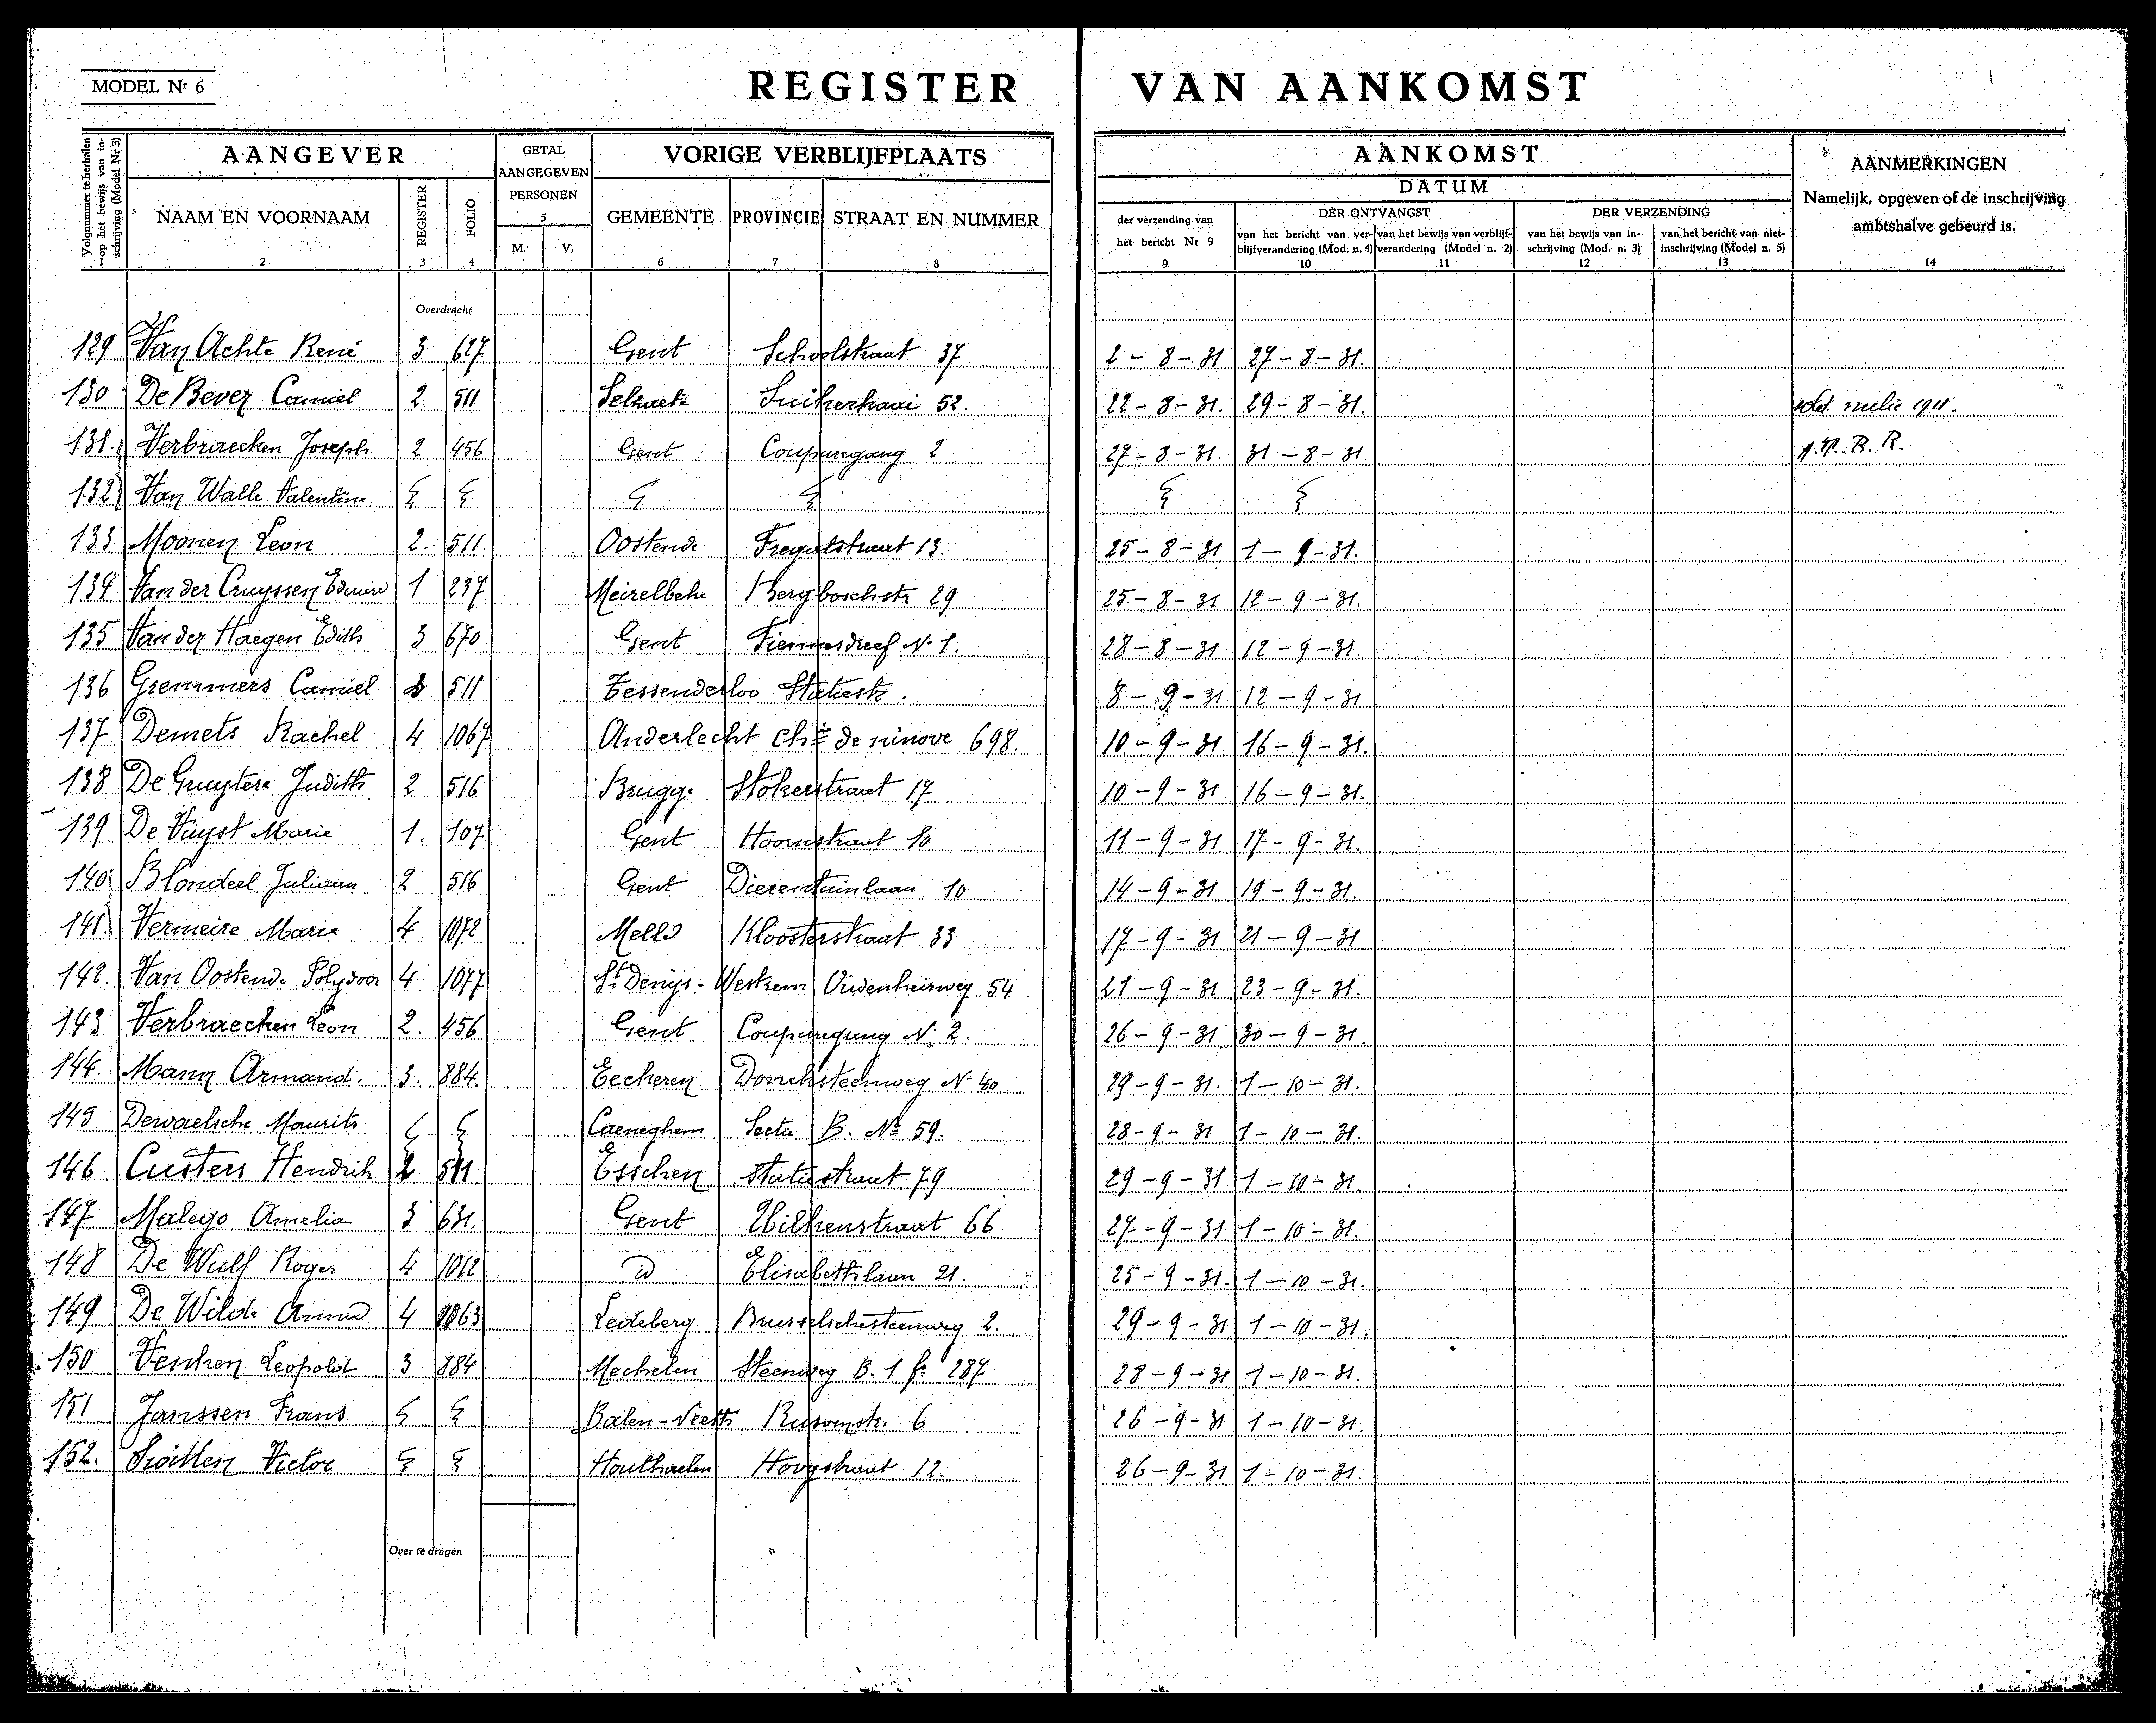 MODEL Nr 6
REGISTER VAN AANKOMST
Volgnummer te herhalen op het bewijs van inschrijving (Model Nr 3)
AANGEVER
NAAM EN VOORNAAM
2
REGISTER
3
FOLIO
4
GETAL AANGEGEVEN PERSONEN
5
M. V.
VORIGE VERBLIJFPLAATS
GEMEENTE
6
PROVINCIE
7
STRAAT EN NUMMER
8
AANKOMST
DATUM
der verzending van het bericht Nr 9
9
DER ONTVANGST
van het bericht van verblijfverandering (Mod. n. 4)
10
van het bewijs van verblijfverandering (Model n. 2)
11
DER VERZENDING
van het bewijs van inschrijving (Mod. n. 3)
12
van het bericht van niet-inschrijving (Model n. 5)
13
AANMERKINGEN
Namelijk, opgeven of de inschrijving ambtshalve gebeurd is.
14
Overdracht
129 Van Achte René 3 627 Gent Schoolstraat 37 2-8-31 27-8-31.
130 De Bever Camiel 2 511 Selzaete Suikerkaai 52. 22-8-31. 29-8-31. milic 1911.
131. Verbraecken Joseph 2 456 Gent Coupuregang 2 27-8-31. 31-8-31 R.
132 Van Walle Valentine
133 Moonen Leon 2. 511. Oostende 13. 25-8-31 1-9-31.
134 Van der Cruyssen 1 237 Meirelbeke Bergboschstr 29 25-8-31 12-9-31.
135 Van der Haegen Edith 3 670 Gent Fiennesdreef No 1. 28-8-31 12-9-31.
136 Gremmers Camiel 511 Tessenderloo Statiestr. 8-9-31 12-9-31
137 Demets Rachel 4 1067 Anderlecht chée de ninove 698. 10-9-31 16-9-31.
138 De Gruytere Judith 2 516 Brugge Stokerstraat 17 10-9-31 16-9-31.
139 De Vuyst Marie 1. 107 Gent Hoornstraat 10 11-9-31 17-9-31.
140 Blondeel Juliaan 2 516 Gent Dierentuinlaan 10 14-9-31 19-9-31.
141. Vermeire Maria 4. 1072 Melle Kloosterstraat 33 17-9-31 21-9-31
142. Van Oostende Polydoor 4 1077 St Denijs-Westrem 54 21-9-31 23-9-31.
143 Verbraecken Leon 2. 456 Gent Coupuregang No 2. 26-9-31 30-9-31
144. Mann Armand. 3. 884. Eeckeren Doncksteenweg No 40 29-9-31. 1-10-31.
145 Dewaelsche Maurits Caeneghem Sectie B. No 59. 28-9-31 1-10-31.
146 Custers Hendrik 2 511 Esschen Statiestraat 79 29-9-31 1-10-31.
147 Amelia 3 631. Gent Wilkenstraat 66 27-9-31 1-10-31.
148 De Wulf Roger 4 1012 id Elisabethlaan 21. 25-9-31. 1-10-31.
149 De Wilde 4 1063 Ledeberg Brusselschesteenweg 2. 29-9-31 1-10-31.
150 Venken Leopold 3 884 Mechelen Steenweg B. 1 fo 287 28-9-31 1-10-31.
151 Janssen Frans Balen-Neeth 6 26-9-31 1-10-31.
152. Victor Houthaelen Hoogstraat 12. 26-9-31 1-10-31.
Over te dragen